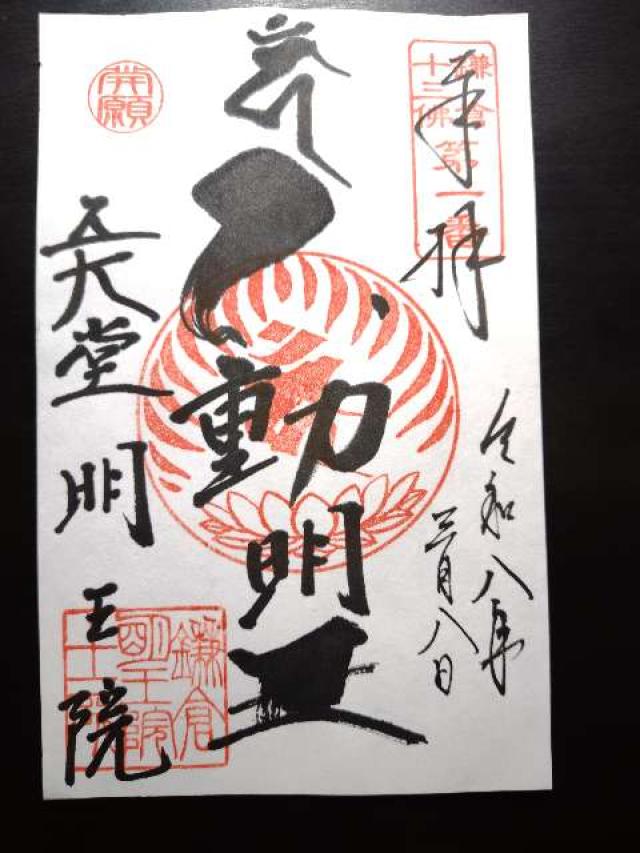 奉拝
鎌倉
十三佛第一番
令和八年
三月八日
不動明王
開願
五大堂明王院
鎌倉
明王院